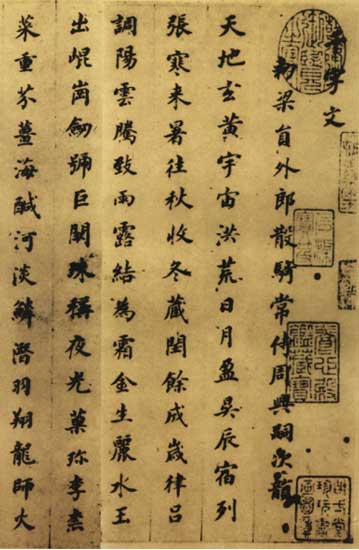 千字文
勑梁員外郎散騎常侍周興嗣次韻
天地玄黃宇宙洪荒日月盈昃辰宿列
張寒来暑往秋收冬藏閏餘成歲律呂
調陽雲騰致雨露結為霜金生麗水玉
出崐崗劒號巨闕珠稱夜光菓珎李柰
菜重芥薑海醎河淡鱗潛羽翔龍師火